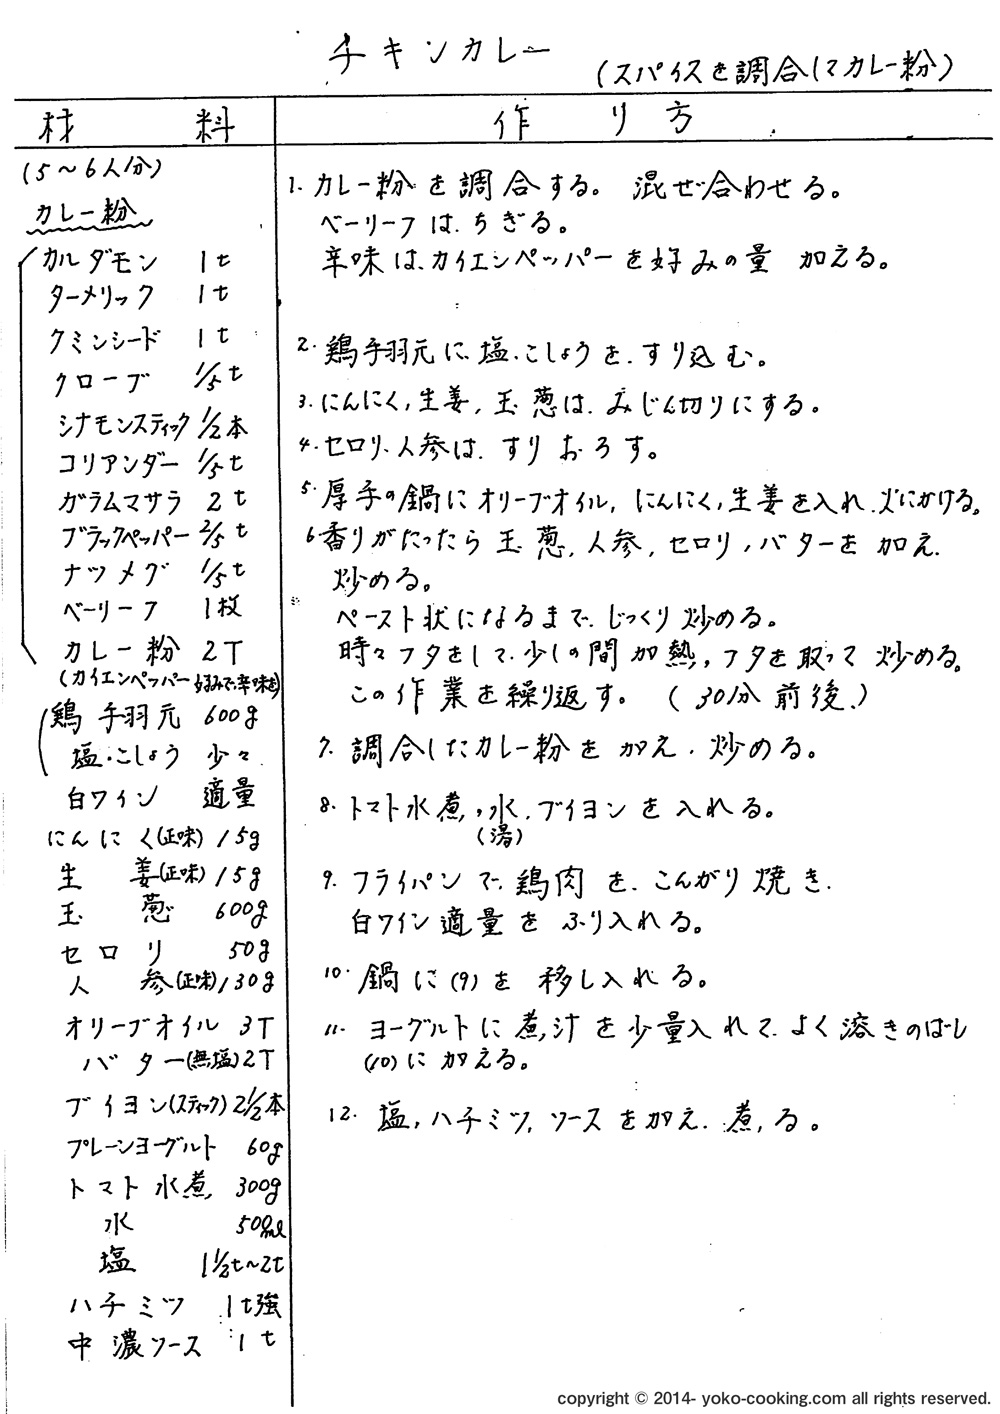 チキンカレー
(スパイスを調合してカレー粉)
材 料
作 り 方
(5〜6人分)
カレー粉
カルダモン 1t
ターメリック 1t
クミンシード 1t
クローブ 1/5t
シナモンスティック 1/2本
コリアンダー 1/5t
ガラムマサラ 2t
ブラックペッパー 2/5t
ナツメグ 1/5t
ベーリーフ 1枚
カレー粉 2T
(カイエンペッパー 好みで辛味を)
鶏手羽元 600g
塩・こしょう 少々
白ワイン 適量
にんにく(正味) 15g
生姜(正味) 15g
玉葱 600g
セロリ 50g
人参(正味) 130g
オリーブオイル 3T
バター(無塩) 2T
ブイヨン(スティック) 2 1/2本
プレーンヨーグルト 60g
トマト水煮 300g
水 500ml
塩 1 1/2t〜2t
ハチミツ 1t強
中濃ソース 1t
1. カレー粉を調合する。 混ぜ合わせる。
ベーリーフは、ちぎる。
辛味は、カイエンペッパーを好みの量 加える。
2. 鶏手羽元に、塩・こしょうを、すり込む。
3. にんにく,生姜,玉葱は、みじん切りにする。
4. セロリ、人参は、すりおろす。
5. 厚手の鍋にオリーブオイル, にんにく,生姜を入れ、火にかける。
6 香りがたったら玉葱,人参,セロリ,バターを加え、
炒める。
ペースト状になるまで、じっくり炒める。
時々フタをして、少しの間加熱,フタを取って炒める。
この作業を繰り返す。 (30分前後、)
7. 調合したカレー粉を加え、炒める。
8. トマト水煮,水、ブイヨンを入れる。
(湯)
9. フライパンで、鶏肉を、こんがり焼き、
白ワイン適量を ふり入れる。
10. 鍋に(9)を 移し入れる。
11. ヨーグルトに煮汁を少量入れて、よく溶きのばし
(10)に加える。
12. 塩,ハチミツ,ソースを加え、煮る。
copyright © 2014- yoko-cooking.com all rights reserved.